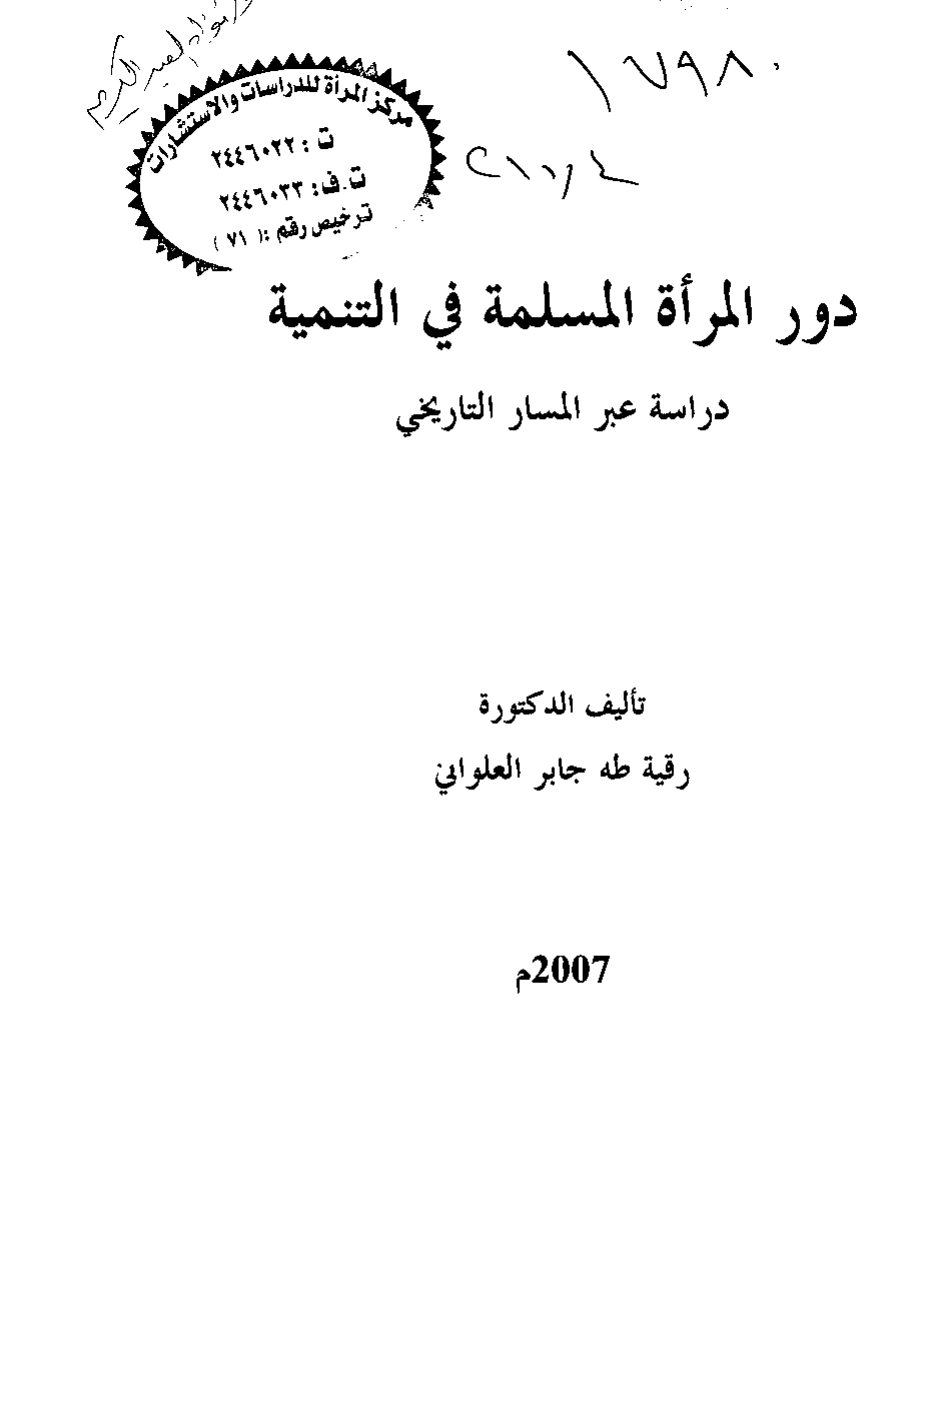 ١٧٩٨٠
مركز المرأة للدراسات والاستشارات
ت : ٢٤٤٦٠٢٢
ت.ف: ٢٤٤٦٠٣٣
ترخيص رقم :( ٧١ )
دور المرأة المسلمة في التنمية
دراسة عبر المسار التاريخي
تأليف الدكتورة
رقية طه جابر العلواني
2007م